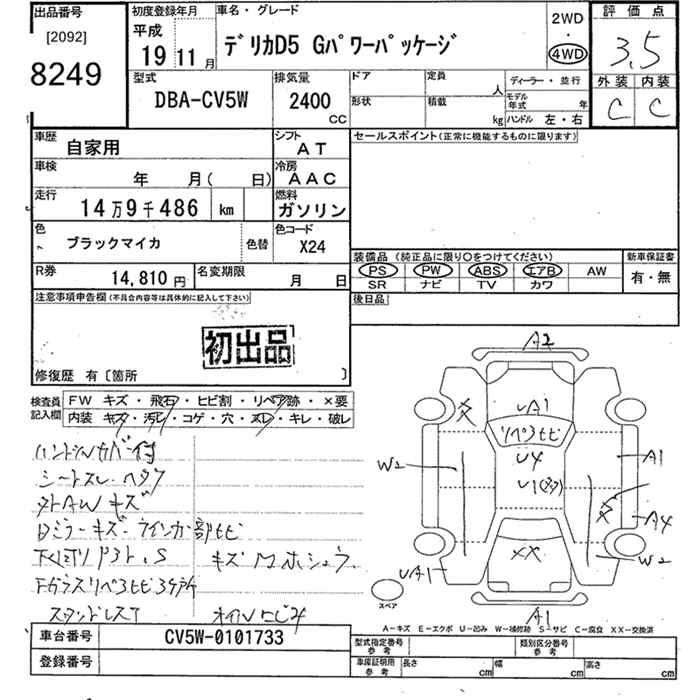 出品番号
[2092]
8249
初度登録年月
平成
19 11 月
車名・グレード
デリカD5 Gパワーパッケージ
2WD
・
4WD
評価点
3.5
外装 内装
C C
型式
DBA-CV5W
排気量
2400
CC
ドア
形状
定員
人
積載
kg
ディーラー・並行
モデル年式 年
ハンドル 左・右
車歴
自家用
シフト
AT
車検
年 月( 日)
冷房
AAC
走行
14万9千486 km
燃料
ガソリン
色
ブラックマイカ
色替
色コード
X24
R券
14,810 円
名変期限
月 日
セールスポイント(正常に機能するものに限ります)
装備品 (純正品に限り○をつけてください)
PS PW ABS エアB AW
SR ナビ TV カワ
新車保証書
有・無
後日品
注意事項申告欄 (不具合内容等は具体的に記入して下さい)
初出品
修復歴 有〔箇所 〕
検査員記入欄
FW キズ・飛石・ヒビ割・リペア跡・×要
内装 キズ・汚れ・コゲ・穴・スレ・キレ・破レ
ハンドルカバー付
シートスレ ヘタリ
外AWキズ
キズ
スタッドレス
A2
UA1
リペヒビ
U4
U1
W2
A1
A4
W2
UA1
XX
A1
スペア
A-キズ E-エクボ U-凹み W-補修跡 S-サビ C-腐食 XX-交換済
車台番号
CV5W-0101733
登録番号
型式指定番号
参考
類別区分番号
参考
車庫証明用
参考
長さ cm
幅 cm
高さ cm